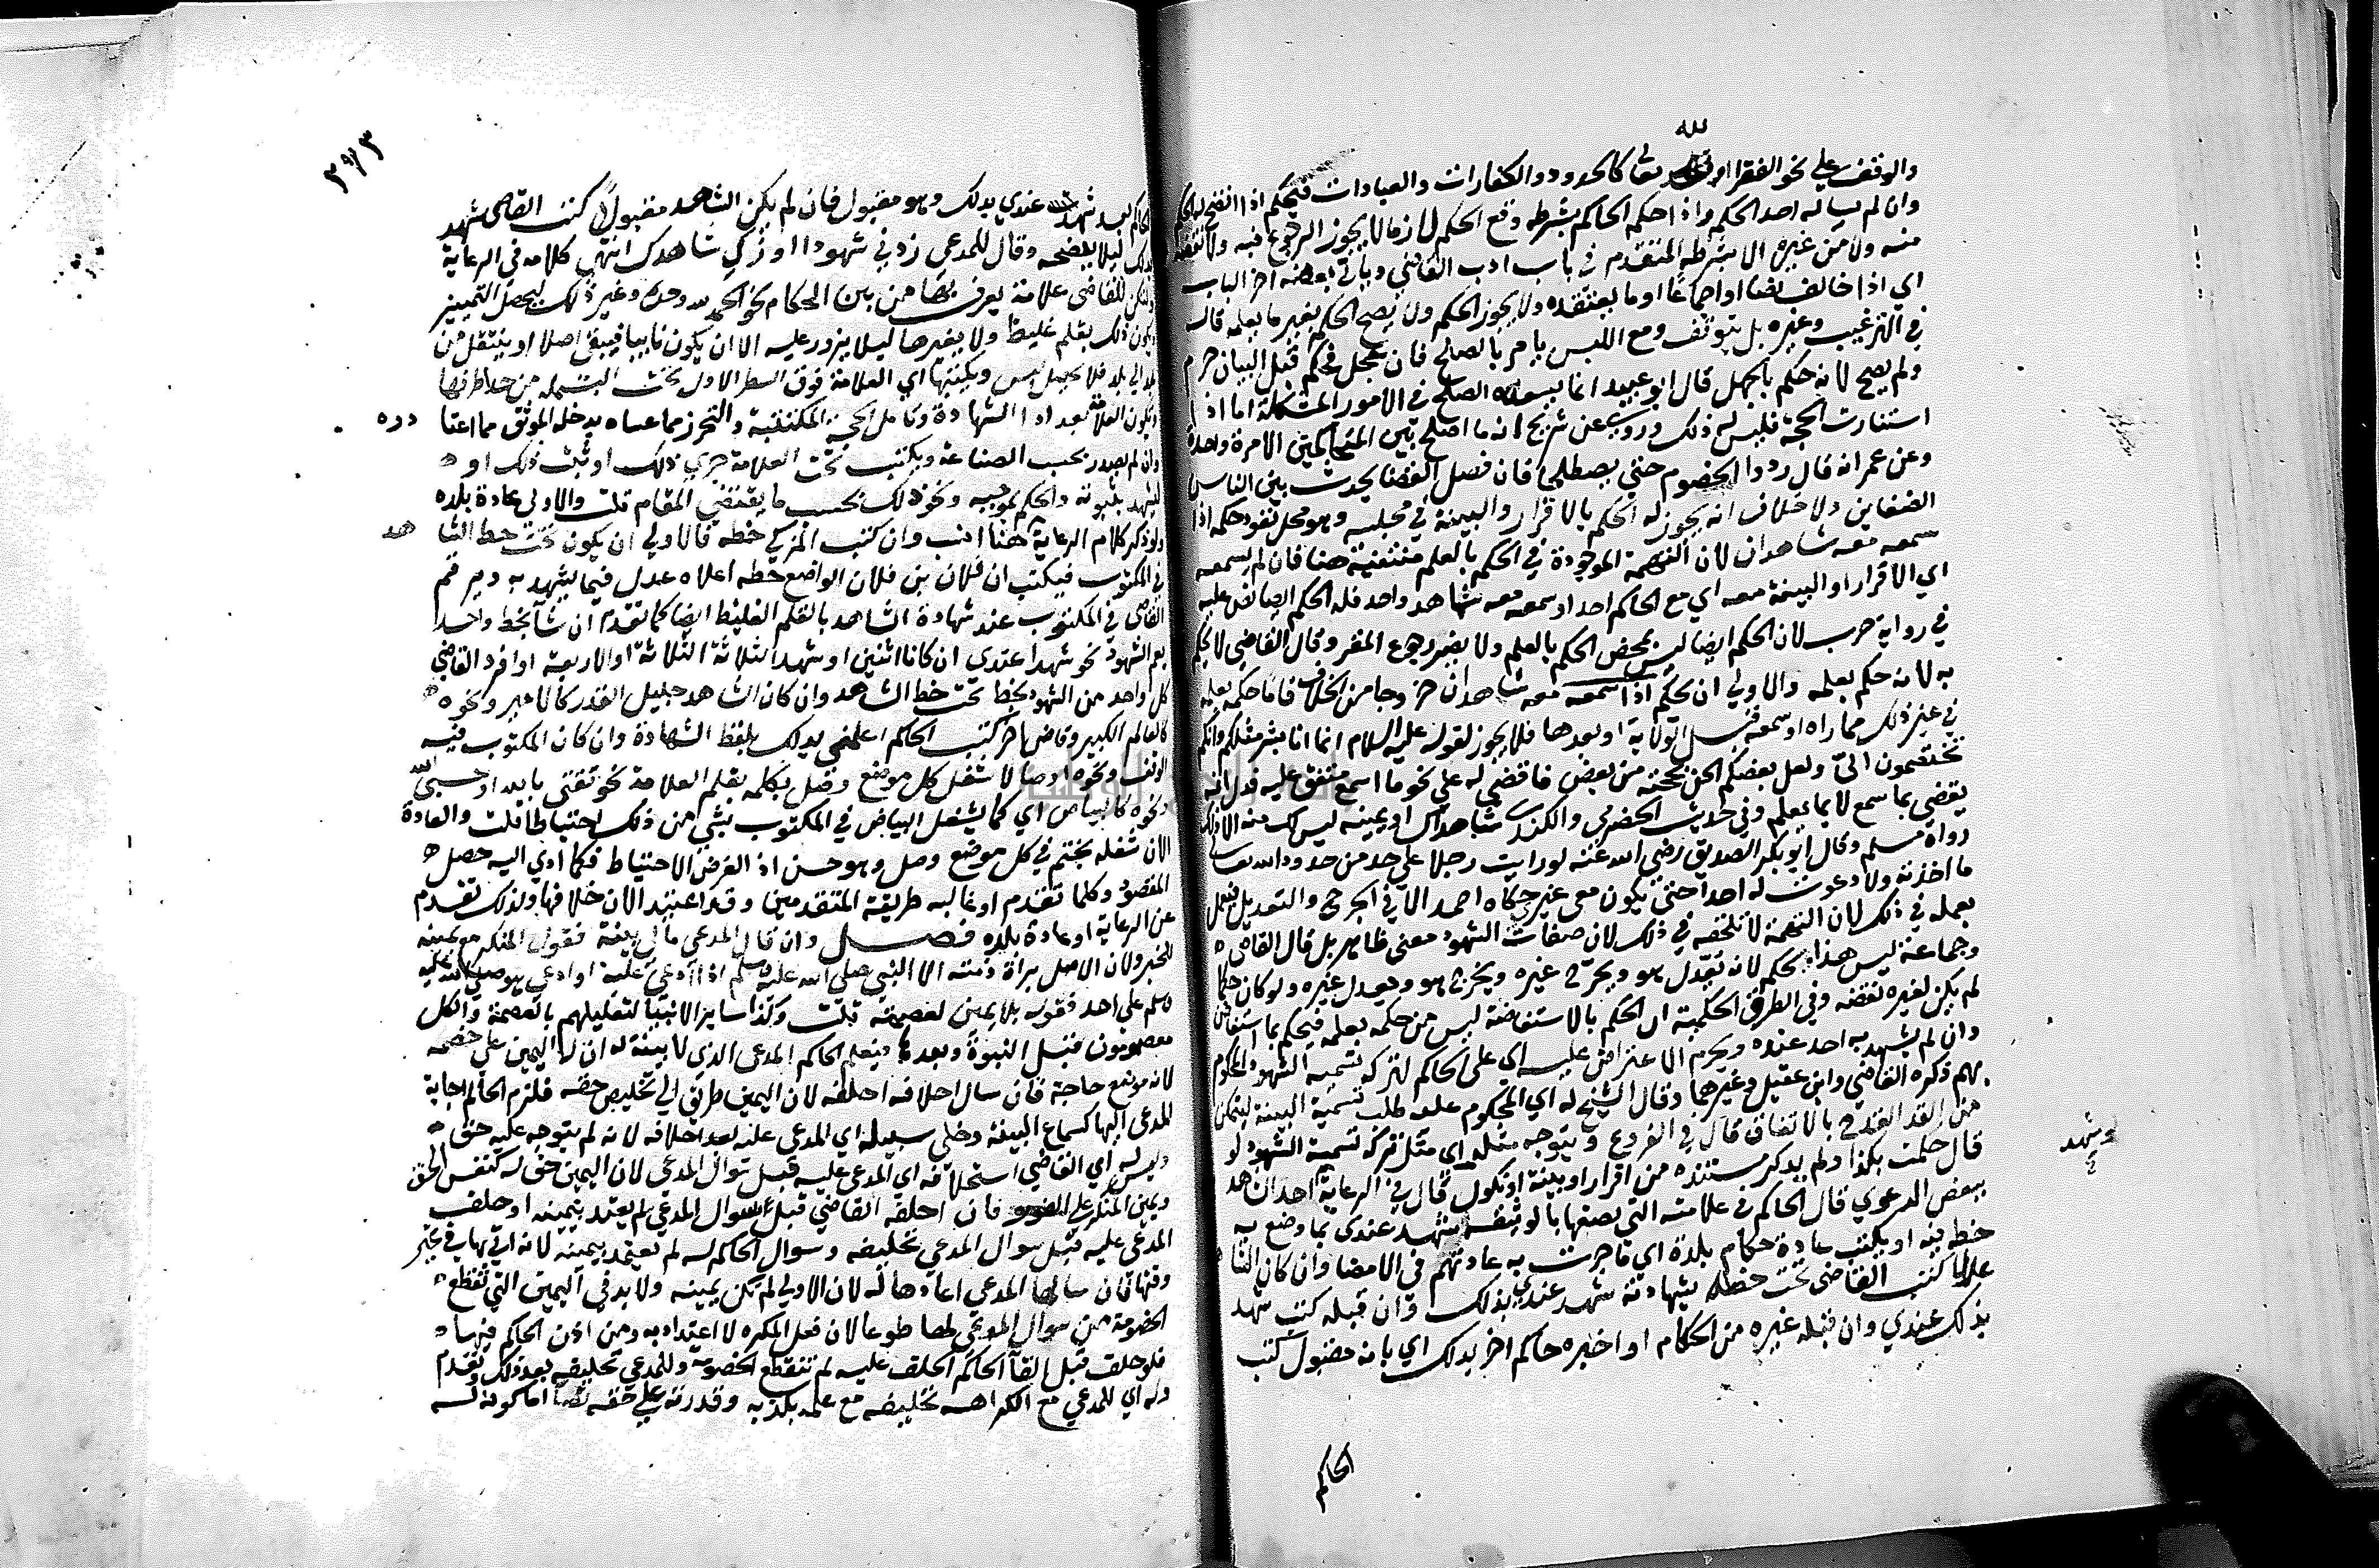 لله
والوقف علي نحو الفقرا او تعالى كالحدود والكفارات والعبادات فيحكم اذا اتضح له الحكم
وان لم يساله احد الحكم واذا حكم الحاكم بشرطه وقع الحكم لازما لا يجوز الرجوع فيه ولا نقضه
منه ولا من غيره الا بشرطه المتقدم في باب ادب القاضي وياتي بعضه اخر الباب
اي اذا خالف نصا او اجماعا او ما يعتقده ولا يجوز الحكم ولا يصح الحكم بغير ما يعلمه قاله
في الترغيب وغيره بل يتوقف ومع اللبس يامر بالصلح فان عجل فحكم قبل البيان حرم
ولم يصح لانه حكم بالجهل قال ابو عبيد انما يسعه الصلح في الامور المشكلة اما اذا
استنارت الحجة فليس له ذلك وروي عن شريح انه ما اصلح بين المتحاكمين الا مرة واحدة
وعن عمر انه قال ردوا الخصوم حتى يصطلحوا فان فصل القضا يحدث بين الناس
الضغاين ولا خلاف انه يجوز له الحكم بالاقرار والبينة في مجلسه وهو محل نفوذ حكمه اذا
سمعه معه شاهدان لان التهمة الموجودة في الحكم بالعلم منتفية هنا فان لم يسمعه
اي الاقرار او البينة معه اي مع الحاكم احد او سمعه معه شاهد واحد فله الحكم ايضا نص عليه
في رواية حرب لان الحكم ايضا ليس بمحض الحكم بالعلم ولا يضر رجوع المقر وقال القاضي لا يحكم
به لانه حكم بعلمه والاولي ان يحكم اذا سمعه معه شاهدان خروجا من الخلاف فاما حكمه بعلمه
في غير ذلك مما راه او سمعه قبل الولاية او بعدها فلا يجوز لقوله عليه السلام انما انا بشر مثلكم وانكم
تختصمون الي ولعل بعضكم الحن بحجته من بعض فاقضي له على نحو ما اسمع متفق عليه فدل انه
يقضي بما سمع لا بما يعلم وفي حديث الحضرمي والكندي شاهداك او يمينه ليس لك منه الا ذلك
رواه مسلم وقال ابو بكر الصديق رضي الله عنه لو رايت رجلا على حد من حدود الله تعالى
ما اخذته ولا دعوت له احدا حتى يكون معي غيري حكاه احمد الا في الجرح والتعديل فيعمل
بعلمه في ذلك لان التهمة لا تلحقه في ذلك لان صفات الشهود معنى ظاهر بل قال القاضي
وجماعة ليس هذا بحكم لانه يعدل هو ويجرح غيره ويجرح هو ويعدل غيره ولو كان حكما
لم يكن لغيره نقضه وفي الطرق الحكمية ان الحكم بالاستفاضة ليس من حكمه بعلمه فيحكم بما استفاض
وان لم يشهد به احد عنده ويحرم الاعتراض عليه اي على الحاكم لتركه تسمية الشهود المحكوم
بهم ذكره القاضي وابن عقيل وغيرهما وقال الشيخ له اي المحكوم عليه طلب تسمية البينة ليتمكن
من القدح بالاتفاق قال في الفروع ويتوجه مثله اي مثل تركه تسمية الشهود لو
قال حكمت بكذا ولم يذكر مستنده من اقرار او بينة او نكول قال في الرعاية
لو شهد
ببعض الدعوي قال الحاكم في علامته التي يصنعها بالوثيقة شهد عندي بما وضع به
خطه فيه او يكتب عادة حكام بلده اي ما جرت به عادتهم في الامضا وان كان الشاهد
عدلا كتب القاضي تحت خطه بشهادته شهد عندي بذلك وان قبله كتب شهد
بذلك عندي وان قبله غيره من الحكام او اخبره حاكم اخر بذلك اي بانه مقبول كتب
الحاكم
٣٩٣
الحاكم شهد عندي بذلك وهو مقبول فان لم يكن الشاهد مقبولا كتب القاضي شهد
بذلك ليلا يفضحه وقال للمدعي زدني شهودا او زكي شاهدك انتهى كلامه في الرعاية
وليكن للقاضي علامة يعرف بها من بين الحكام نحو الحمد لله وحده وغير ذلك ليحصل التمييز
ويكون ذلك بقلم غليظ ولا يغيرها ليلا يزور عليه الا ان يكون نايبا فيبقى اصلا او ينتقل من
بلد الي بلد فلا يحصل لبس ويكتبها اي العلامة فوق السطر الاول تحت البسملة من
وتكون العلامة بعد اداء الشهادة وتامل الحجة المكتتبة والتحرز مما عساه يدخله الموثق مما اعتا
ده
وان لم يصدر بحسب الصناعة ويكتب تحت العلامة جري ذلك او ثبت ذلك او
ليشهد بثبوته والحكم بموجبه ونحو ذلك بحسب ما يقتضي المقام قلت والاولى عادة بلده
ولو ذكر كلام الرعاية هنا وان كتب المزكي خطه فالاولي ان يكون تحت خط الشا
هد
في المكتوب فيكتب ان فلان بن فلان الواضع خطه اعلاه عدل فيما يشهد به ويرقم
القاضي في المكتوب عند شهادة الشاهد بالقلم الغليظ ايضا كما تقدم ان شا بخط واحد
يعم الشهود نحو شهدا عندي ان كانا اثنين او شهد الثلاثة الثلاثة او الاربعة او افرد القاضي
كل واحد من الشهود بخط تحت خط الشاهد وان كان الشاهد جليل القدر كالامير ونحوه
كالعالم الكبير وقاض اخر كتب الحاكم اعلمني بذلك بلفظ الشهادة وان كان المكتوب فيه
الوقف ونحوه اوصالا شغل كل موضع وصل بكلمة بقلم العلامة نحو ثقتي بالله او حسبي الله
ونحوه كالبياض اي كما يشغل البياض في المكتوب بشي من ذلك احتياطا قلت والعادة
الان شغله بختم في كل موضع وصل وهو حسن اذ الغرض الاحتياط فكلما ادي اليه حصل
المقصود وكلما تقدم او غالبه طريقة المتقدمين وقد اعتيد الان خلافها ولذلك تقدم
عن الرعاية او عادة بلده فصل وان قال المدعي ما لي بينة فقول المنكر مع يمينه
للخبر ولان الاصل براة ذمته الا النبي صلى الله عليه وسلم اذا ادعي عليه او ادعى هو صلى الله عليه
وسلم على احد فقوله بلا يمين لعصمته قلت وكذا ساير الانبيا لتعليلهم بالعصمة والكل
معصومون قبل النبوة وبعدها ويعلم الحاكم المدعي الذي لا بينة له ان له اليمين على خصمه
لانه موضع حاجة فان سال احلافه احلفه لان اليمين طريق الي تخليص حقه فلزم الحاكم اجابة
المدعي اليها كسماع البينة وخلي سبيله اي المدعي عليه بعد احلافه لانه لم يتوجه عليه حق
وليس له اي القاضي استحلافه اي المدعي عليه قبل سوال المدعي لان اليمين حق له كنفس الحق
ويمين المنكر على الفور فان احلفه القاضي قبل سوال المدعي لم يعتد بيمينه او حلف
المدعى عليه قبل سوال المدعي تحليفه وسوال الحاكم له لم يعتد بيمينه لانه اتي بها في غير
وقتها فان سالها المدعي اعادها له لان الاولي لم تكن يمينه ولا بد في اليمين التي تقطع
الخصومة من سوال المدعي لها طوعا لان فعل المكره لا اعتداد به ومن اذن الحاكم فيها
فلو حلف قبل القا الحاكم الحلف عليه لم تنقطع الخصومة وللمدعي تحليفه بعد ذلك تقدم
وله اي للمدعي مع الكراهة تحليفه مع علمه بكذبه وقدرته على حقه نصا اما كونه له